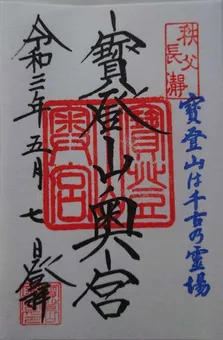 秩父
長瀞
寳登山は千古の霊場
寳登山奥宮
寳登山
奥宮
令和三年五月七日登拝